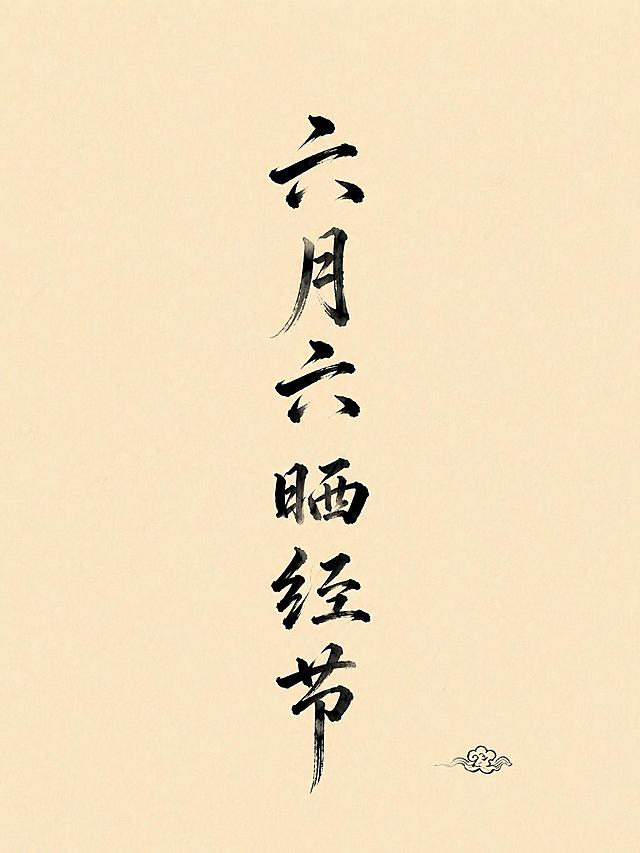 六月六晒经节